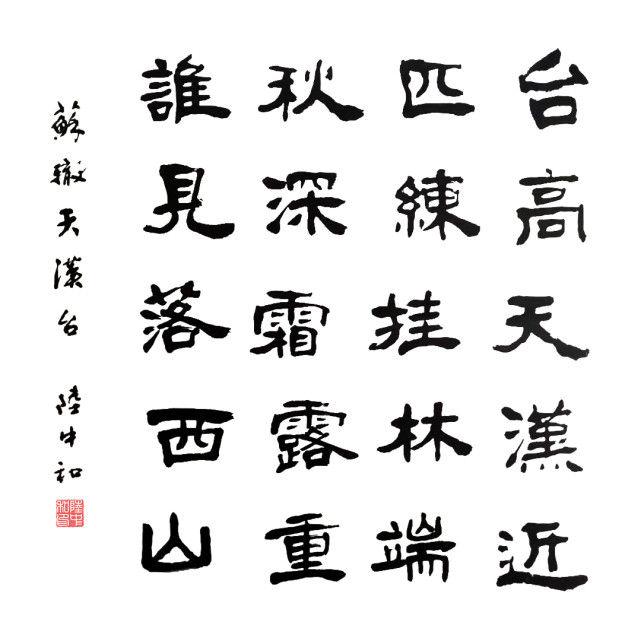 台高天漢近
匹練挂林端
秋深霜露重
誰見落西山
蘇轍天漢台 陸中和
陸中和印